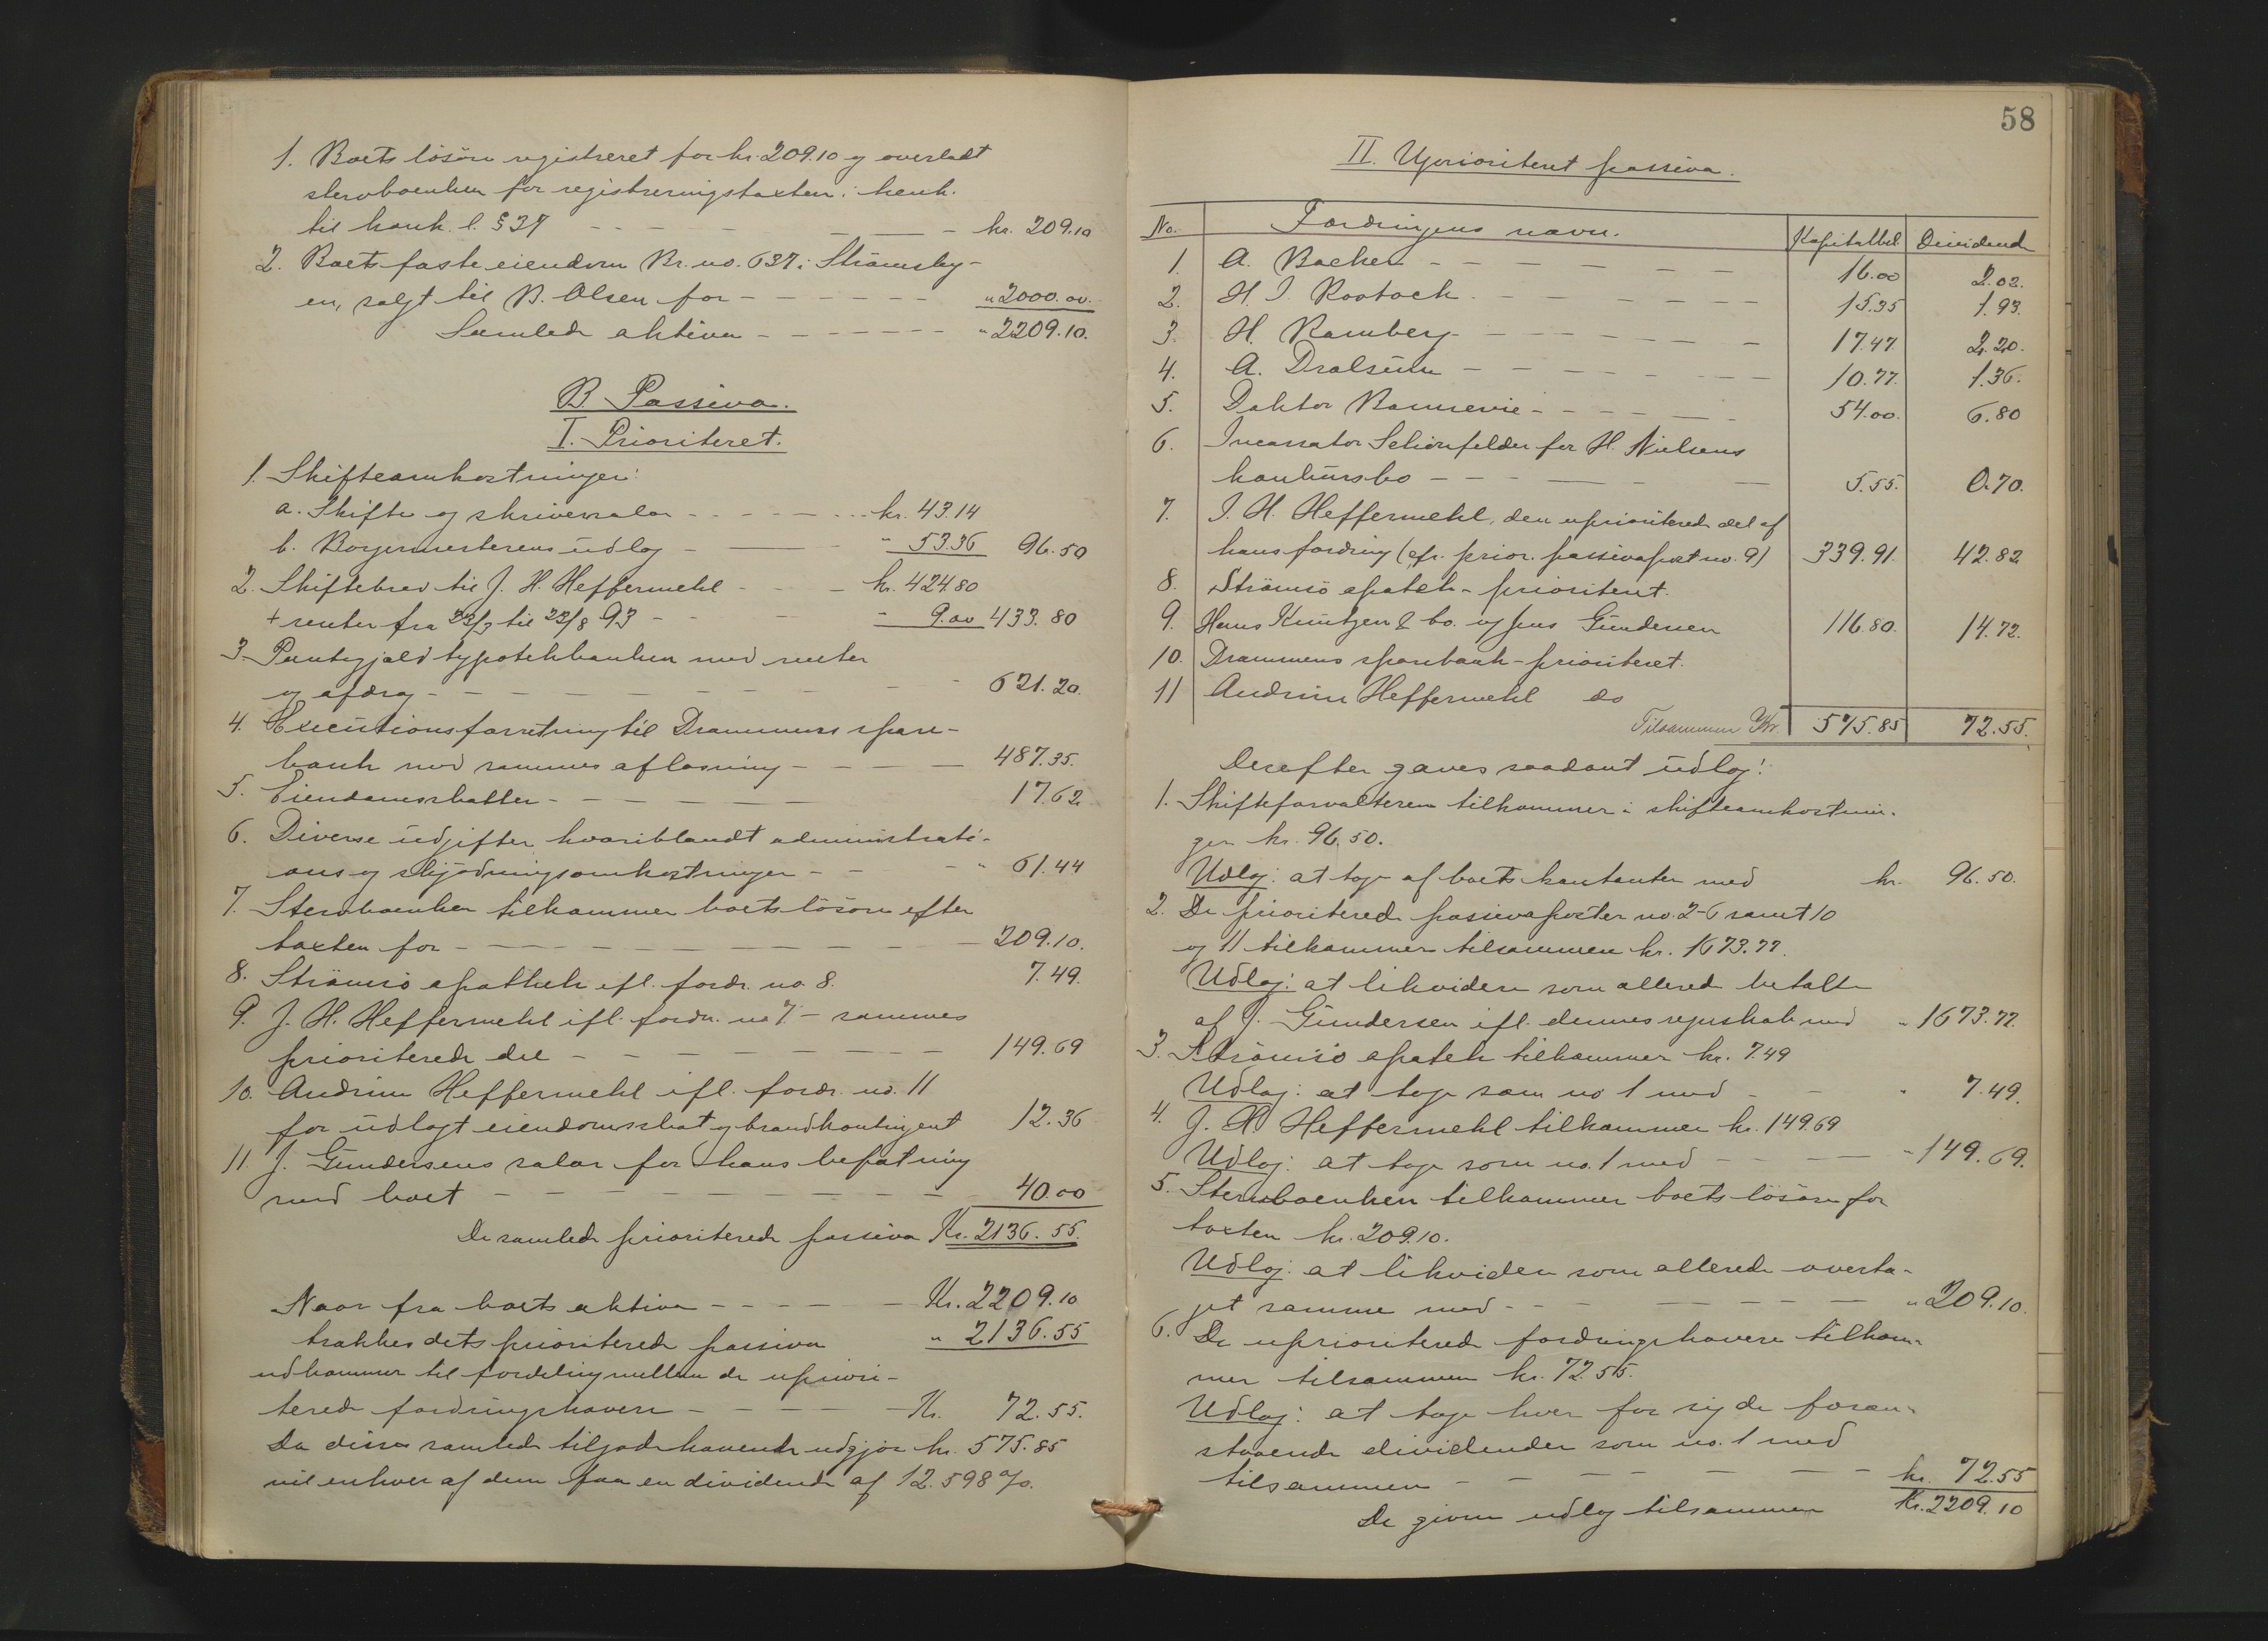 1. Boets lösöre registreret for kr. 209.10 og overladt
stervboenken for registreringstaxten i henh.
til konk. l. § 37 - - - kr. 209.10
2. Boets faste eiendom Br. no. 637 i Strømsby-
en, solgt til B. Olsen for - - - " 2000.00.
Samlede aktiva - - - " 2209.10.
B. Passiva.
I. Prioriteret.
1. Skifteomkostninger:
a. Skifte og skriversalar - - - kr. 43.14
b. Borgermesterens udlæg - - - " 53.36 96.50
2. Skiftebrev til J. H. Heffermehl - - - kr. 424.80
+ renter fra 22/3 til 22/8 93 - - - " 9.00 433.80
3. Pantegjæld hypotekbanken med renter
og afdrag - - - 621.20.
4. Executionsforretning til Drammens spare-
bank med sammes aflæsning - - - 487.35.
5. Eiendomsskatter - - - 17.62
6. Diverse udgifter, hvoriblandt administrati-
ons og skjødningsomkostninger - - - " 61.44
7. Stervboenken tilkommer boets lösöre efter
taxten for - - - 209.10.
8. Strömsö apothek ifl. fordr. no 8. 7.49.
9. J. H. Heffermehl ifl. fordr. no 7. - sammes
prioriterede del - - - 149.69
10. Andrine Heffermehl ifl. fordr. no. 11
for udlagt eiendomsskat og brandkontingent 12.36
11. J. Gundersens salar for hans befatning
med boet - - - 40.00
De samlede prioriterede passiva Kr. 2136.55.
Naar fra boets aktiva - - - Kr. 2209.10
trækkes dets prioriterede passiva " 2136.55
udkommer til fordeling mellem de upriori-
terede fordringshavere - - - Kr. 72.55.
Da disses samlede tilgodehavende udgjør kr. 575.85
vil enhver af dem faa en dividende af 12.598 %.
58
II. Uprioriteret passiva.
No. Fordringens navn. Kapitalbel. Dividend
1. A. Backer - - - 16.00 2.02.
2. H. J. Rostock - - - 15.35 1.93.
3. H. Ramberg - - - 17.47 2.20.
4. A. Dralsum - - - 10.77. 1.36.
5. Doktor - - - 54.00. 6.80
6. Incassator Schönfelder for H. Nielsens
konkursbo - - - 5.55. 0.70.
7. J. H. Heffermehl, den uprioriterede del af
hans fordring (cfr. prior. passivapost no. 9) 339.91 42.82
8. Strömsö apothek - prioriteret.
9. Hans Knutzen & Co. og Jens Gundersen 116.80. 14.72.
10. Drammens sparebank - prioriteret.
11 Andrine Heffermehl do
Tilsammen Kr. 575.85 72.55.
Derefter gaves saadant udlæg:
1. Skifteforvalteren tilkommer i skifteomkostnin-
ger kr. 96.50.
Udlæg: at tage af boets kontanter med kr. 96.50.
2. De prioriterede passivaposter no. 2-6 samt 10
og 11 tilkommer tilsammen kr. 1673.77.
Udlæg: at likvidere som allerede betalte
af J. Gundersen ifl. dennes regnskab med " 1673.77.
3. Strömsö apotek tilkommer kr. 7.49
Udlæg: at tage som no 1 med - - - " 7.49.
4. J. H. Heffermehl tilkommer kr. 149.69
Udlæg: at tage som no. 1 med - - - " 149.69.
5. Stervboenken tilkommer boets lösöre for
taxten kr. 209.10.
Udlæg: at likvidere som allerede overta-
get samme med - - - " 209.10.
6. De uprioriterede fordringshavere tilkom-
mer tilsammen kr. 72.55.
Udlæg: at tage hver for sig de foran-
staaende dividender som no. 1 med
tilsammen - - - kr. 72.55
De givne udlæg tilsammen Kr. 2209.10